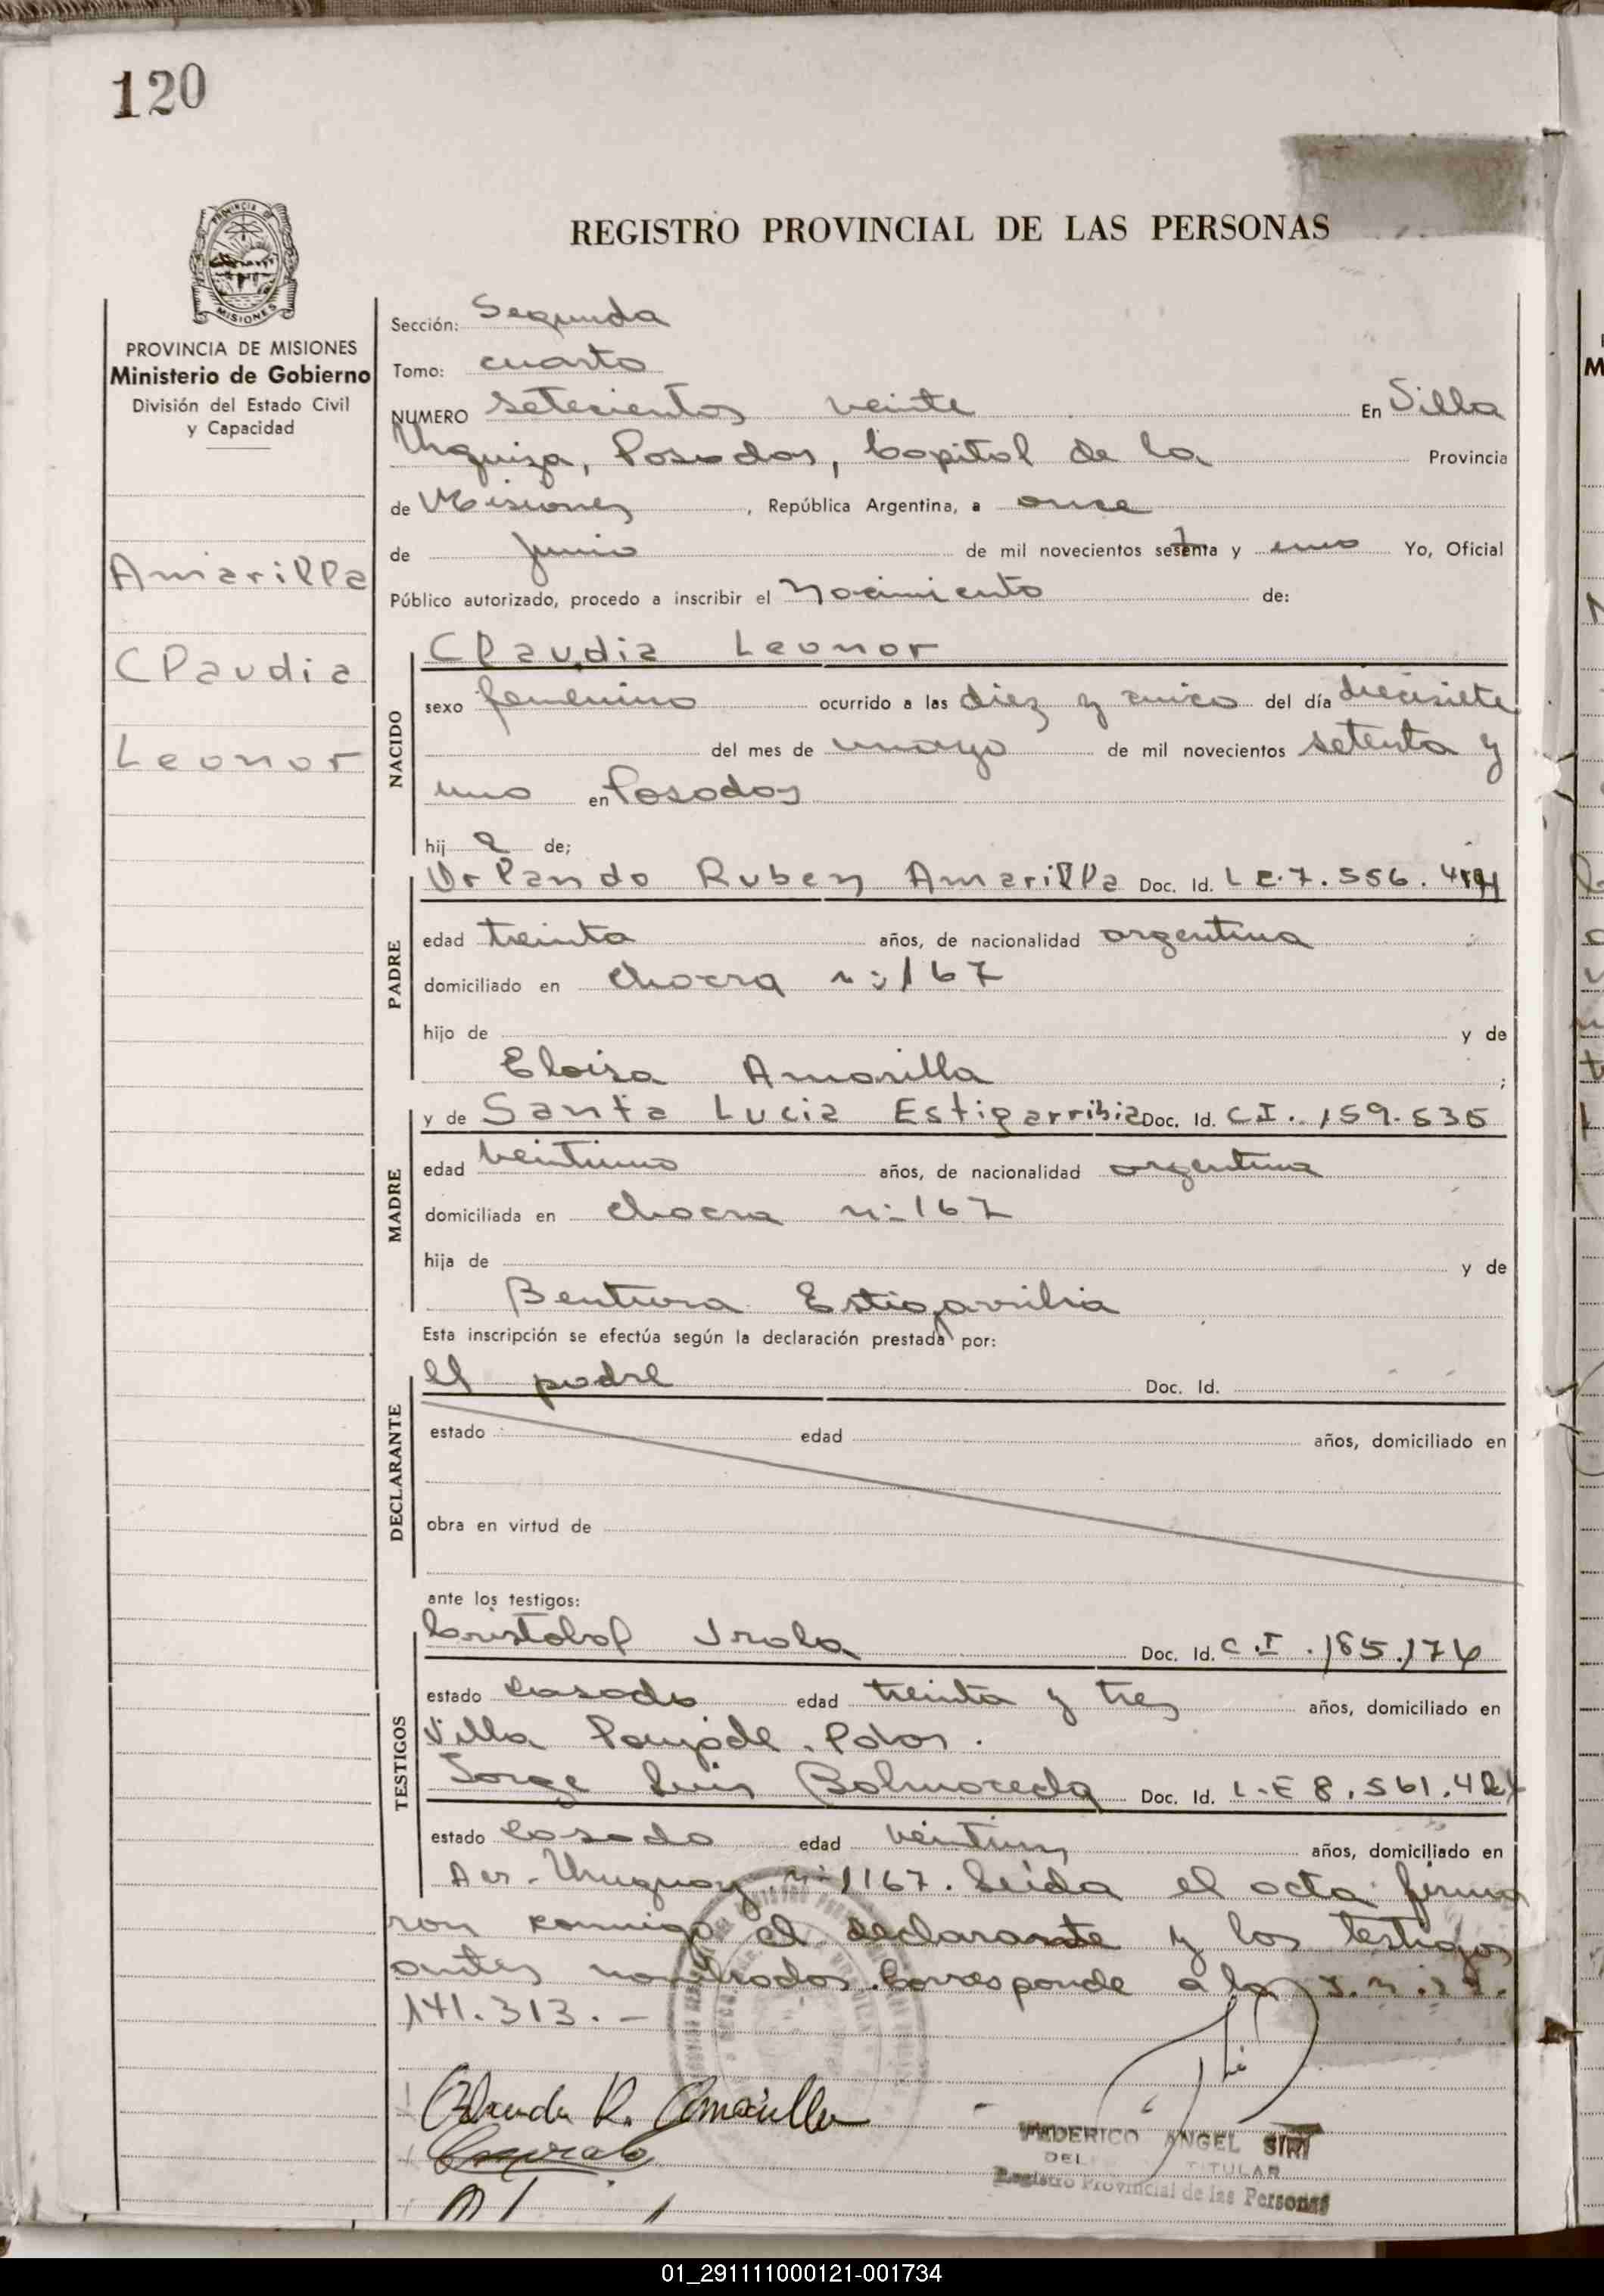 120
REGISTRO PROVINCIAL DE LAS PERSONAS
PROVINCIA DE MISIONES
Ministerio de Gobierno
División del Estado Civil
y Capacidad
Amarilla
Claudia
Leonor
Sección: Segunda
Tomo: cuarto
NUMERO setecientos veinte En Villa
Urquiza, Posadas, Capital de la Provincia
de Misiones, República Argentina, a once
de junio de mil novecientos setenta y uno Yo, Oficial
Público autorizado, procedo a inscribir el Nacimiento de:
NACIDO
Claudia Leonor
sexo femenino ocurrido a las diez y cinco del día diecisiete
del mes de mayo de mil novecientos setenta y
uno en Posadas
hij a de;
PADRE
Orlando Ruben Amarilla Doc. Id. L E. 7.556.
edad treinta años, de nacionalidad argentina
domiciliado en chacra n: 167
hijo de y de
Eloisa Amarilla ;
MADRE
y de Santa Lucia Estigarribia Doc. Id. C I. 159.535
edad veintiuno años, de nacionalidad argentina
domiciliada en chacra n: 167
hija de y de
Bentura Estigarribia
Esta inscripción se efectúa según la declaración prestada por:
DECLARANTE
el padre Doc. Id.
estado edad años, domiciliado en
obra en virtud de
ante los testigos:
TESTIGOS
Cristobal Irala Doc. Id. C.I. 185.174
estado casado edad treinta y tres años, domiciliado en
Villa Pdas.
Jorge Luis Balmaceda Doc. Id. L.E 8.561.
estado casado edad años, domiciliado en
Uruguay n: 1167. Leida el acta firma
ron conmigo el declarante y los testigos
antes nombrados. Corresponde a la
141.313.-
Orlando R. Amarilla
FEDERICO ANGEL SIRI
DEL TITULAR
Registro Provincial de las Personas
01_291111000121-001734